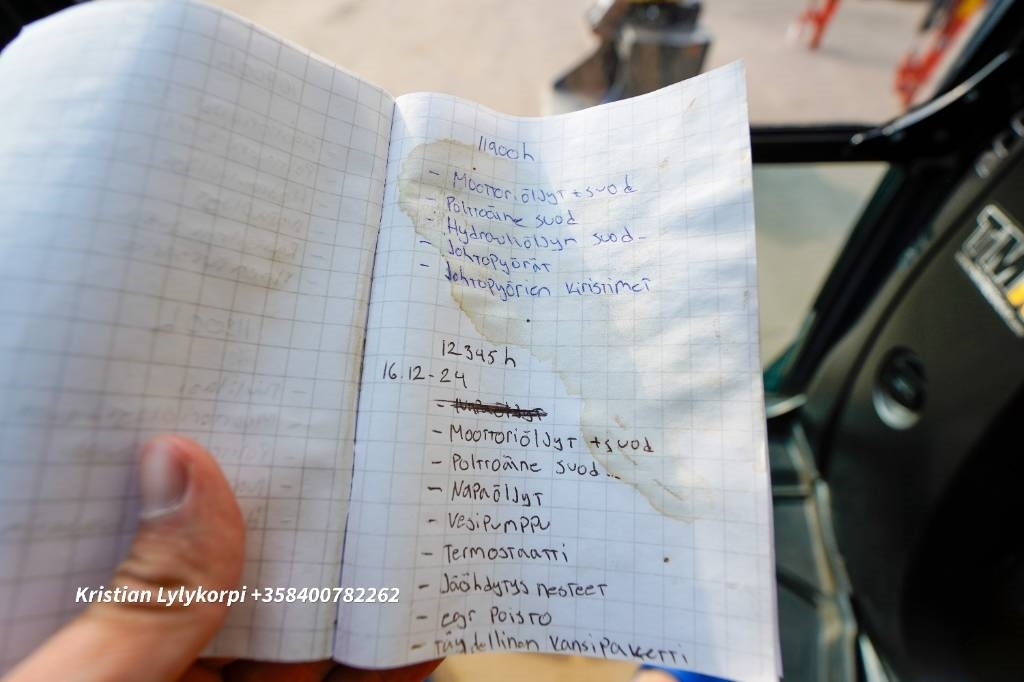 11900h
- Moottoriöljyt + suod
- Polttoaine suod
- Hydrauliöljyn suod-
- Johtopyörät
- Johtopyörien kiristimet
12345h
16.12-24
- Moottoriöljyt + suod
- Polttoaine suod...
- Napaöljyt
- Vesipumppu
- Termostaatti
- Jäähdytys nesteet
- egr Poisto
- Täydellinen kansipaketti
Kristian Lylykorpi +358400782262